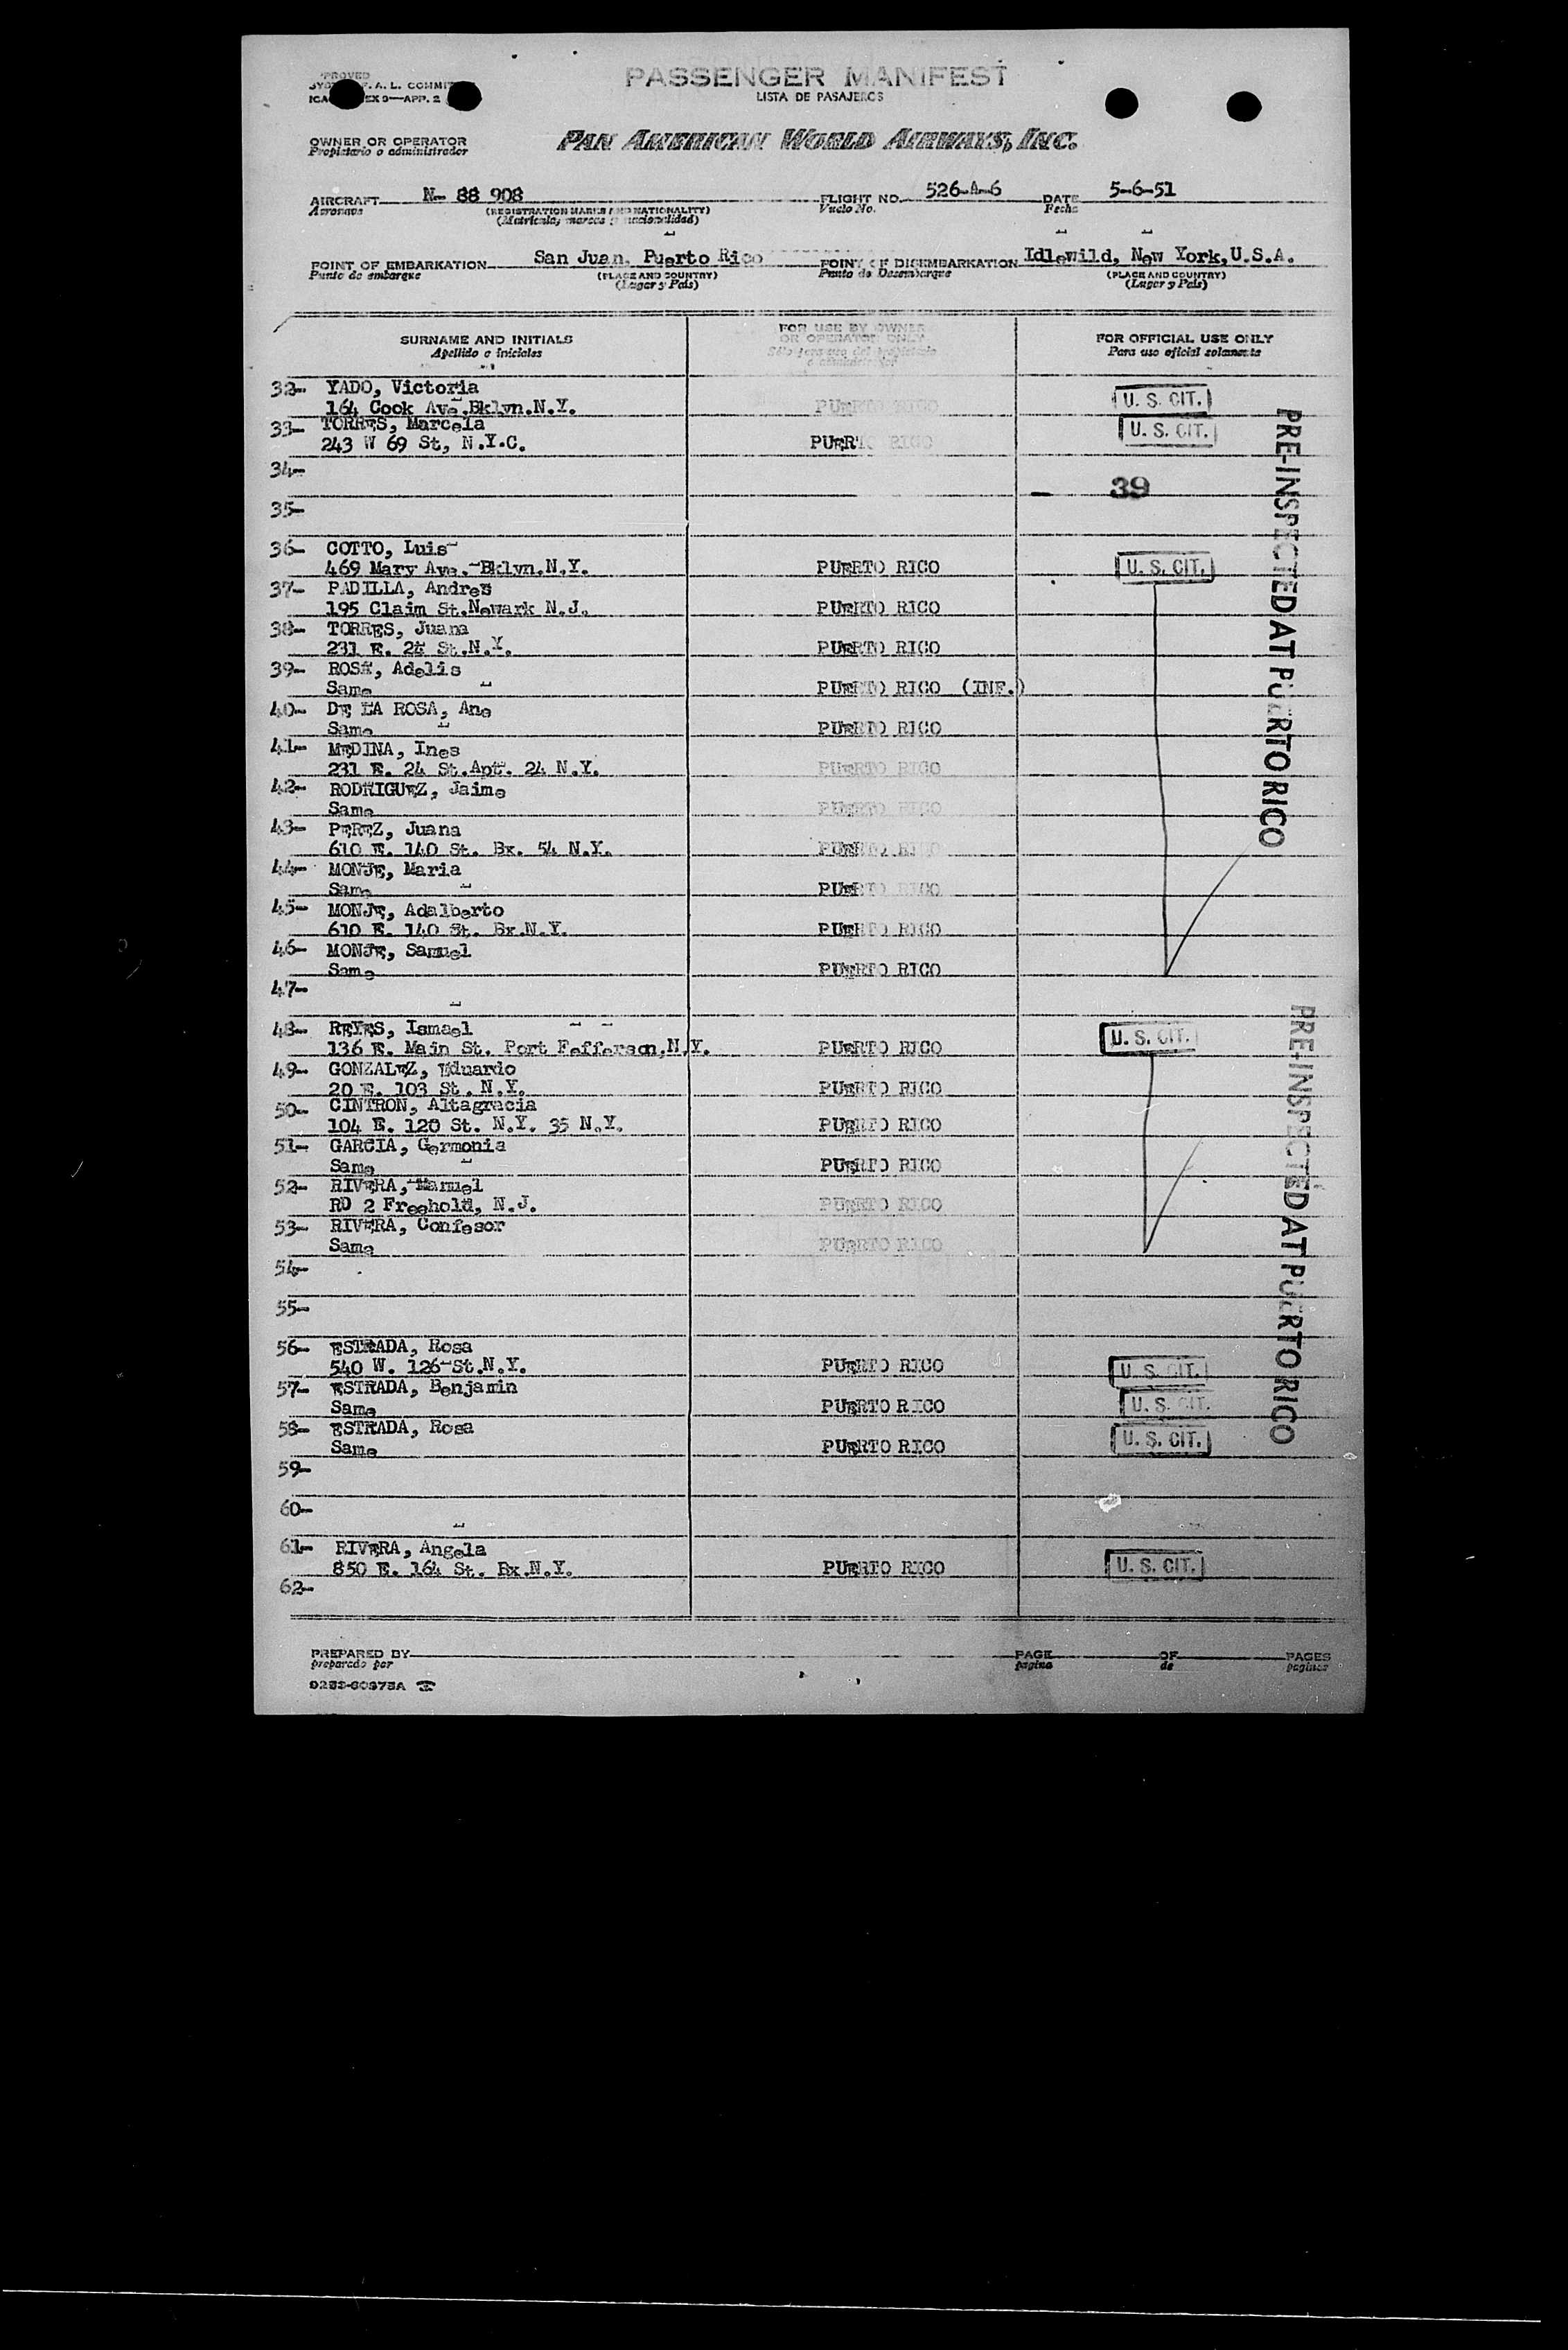 PASSENGER MANIFEST
LISTA DE PASAJEROS
OWNER OR OPERATOR
Propietario o administrador
PAN AMERICAN WORLD AIRWAYS, INC.
AIRCRAFT N- 88 908 FLIGHT NO. 526-A-6 DATE 5-6-51
Aeronave (REGISTRATION MARKS AND NATIONALITY) Vuelo No. Fecha
(Matricula, marcas y nacionalidad)
POINT OF EMBARKATION San Juan, Puerto Rico POINT OF DISEMBARKATION Idlewild, New York,U.S.A.
Punto de embarque (PLACE AND COUNTRY) Punto de Desembarque (PLACE AND COUNTRY)
(Lugar y Pais) (Lugar y Pais)
SURNAME AND INITIALS FOR USE BY OWNER OR OPERATOR ONLY FOR OFFICIAL USE ONLY
Apellido e iniciales Para uso oficial solamente
32- YADO, Victoria
164 Cook Ave.Bklyn.N.Y. PUERTO RICO U. S. CIT.
33- TORRES, Marcela
243 W 69 St, N.Y.C. PUERTO RICO U. S. CIT.
34-
- 39
35-
36- COTTO, Luis
469 Mary Ave.-Bklyn.N.Y. PUERTO RICO U. S. CIT.
37- PADILLA, Andres
195 Claim St.Newark N.J. PUERTO RICO
38- TORRES, Juana
231 E. 24 St.N.Y. PUERTO RICO
39- ROSA, Adelis
Same PUERTO RICO (INF.)
40- DE LA ROSA, Ana
Same PUERTO RICO
41- MEDINA, Ines
231 E. 24 St.Apt. 24 N.Y. PUERTO RICO
42- RODRIGUEZ, Jaime
Same PUERTO RICO
43- PEREZ, Juana
610 E. 140 St. Bx. 54 N.Y. PUERTO RICO
44- MONJE, Maria
Same PUERTO RICO
45- MONJE, Adalberto
610 E. 140 St. Bx.N.Y. PUERTO RICO
46- MONJE, Samuel
Same PUERTO RICO
47-
48- REYES, Ismael
136 E. Main St. Port Fefferson,N.Y. PUERTO RICO U. S. CIT.
49- GONZALEZ, Eduardo
20 E. 103 St. N.Y. PUERTO RICO
50- CINTRON, Altagracia
104 E. 120 St. N.Y. 35 N.Y. PUERTO RICO
51- GARCIA, Germonia
Same PUERTO RICO
52- RIVERA, Manuel
RD 2 Freehold, N.J. PUERTO RICO
53- RIVERA, Confesor
Same PUERTO RICO
54-
55-
56- ESTRADA, Rosa
540 W. 126-St.N.Y. PUERTO RICO U. S. CIT.
57- ESTRADA, Benjamin
Same PUERTO RICO U. S. CIT.
58- ESTRADA, Rosa
Same PUERTO RICO U. S. CIT.
59-
60-
61- RIVERA, Angela
850 E. 164 St. Bx.N.Y. PUERTO RICO U. S. CIT.
62-
PRE-INSPECTED AT PUERTO RICO
PRE-INSPECTED AT PUERTO RICO
PREPARED BY PAGE OF PAGES
preparado por pagina de paginas